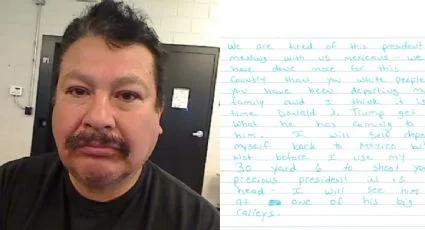 We are tired of this president
messing with us mexicans - we
have done more for this
country than you white people
you have been deporting my
family and I think it is
time Donald J. Trump gets
what he has coming to
him. I will self deport
myself back to Mexico but
not before I use my
30 yard 6 to shoot your
precious president in is
head - I will see him
at one of his big
ralleys.